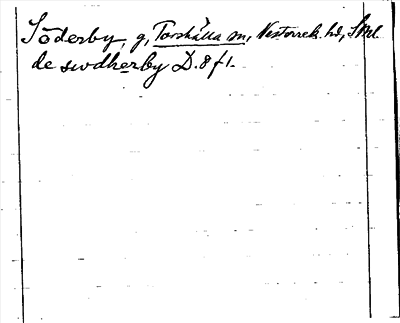 Söderby, g, Torshälla sn, Vesterrek. hd, Sdml
de swdherby D. 8 f 1.